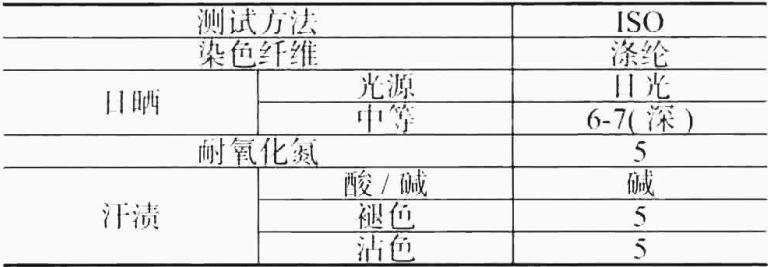 测试方法 ISO
染色纤维 涤纶
日晒 光源 日光
中等 6-7(深)
耐氧化氮 5
汗渍 酸/碱 碱
褪色 5
沾色 5